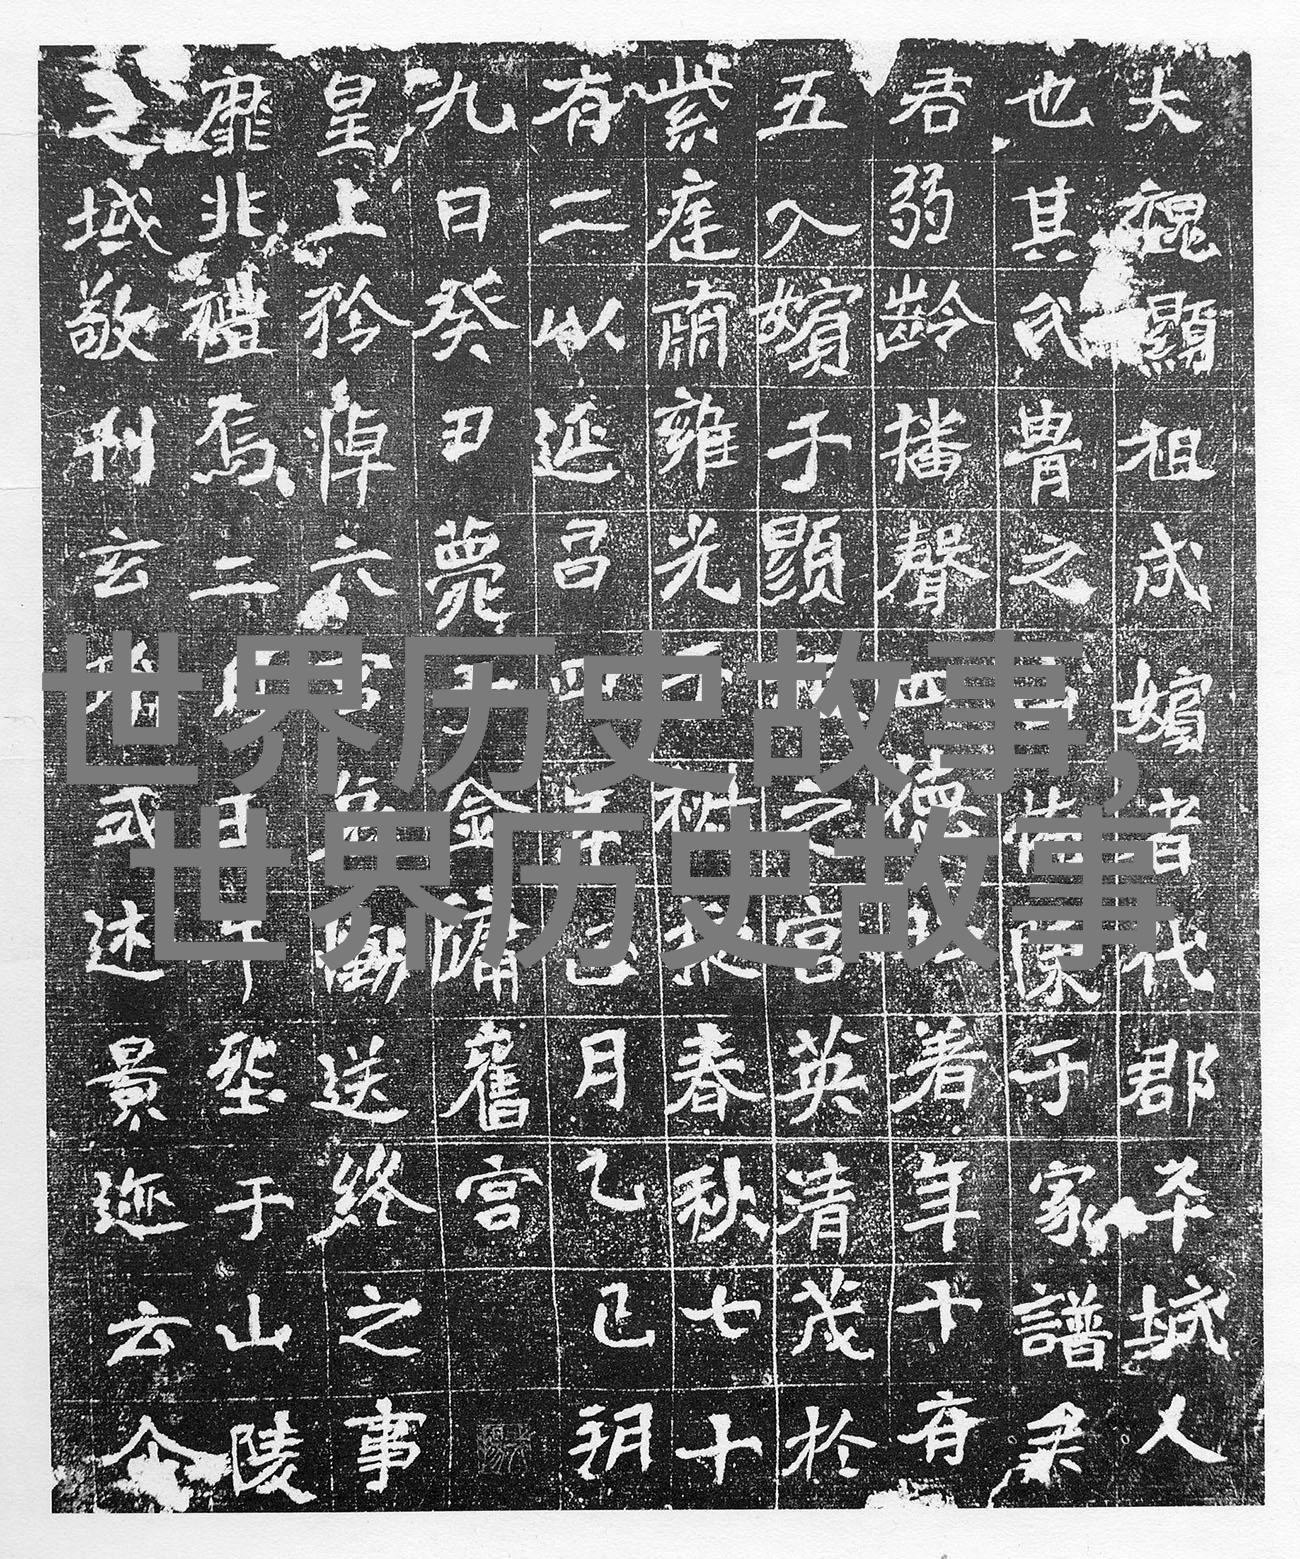 大魏顯祖成嬪者代郡平城人
也其氏胄之備陳于家譜
君弱齡播聲四德著年十有
五入嬪于顯之宮英清茂於
紫庭肅雍光椒掖春秋七十
有二以延昌四年月乙巳朔
九日癸丑薨于金墉舊宮
皇上矜悼六宮哀慟送終之事
靡非禮焉二月日于山陵
之域敬刊玄式述景迹云
世界历史故事,
世界历史故事